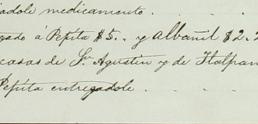 adole medicamento . . . .
gado á Pepita $5. . y Albañil $2.2
casas de Sn Agustin y de Tlalpan
Pepita entregadole . . . .